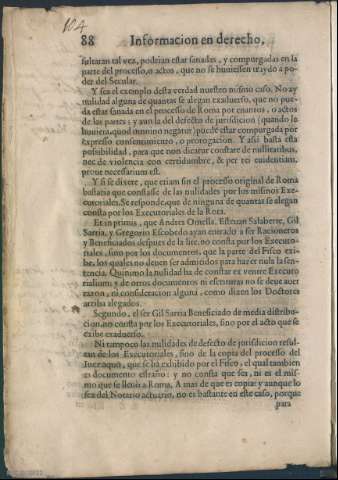 104
88 Informacion en derecho,
sultaran tal vez, podrian estar sanadas, y compurgadas en la
parte del processo, o actos, que no se huuiessen traydo a po-
der del Secular.
Y sea el exemplo desta verdad nuestro mismo caso. No ay
nulidad alguna de quantas se alegan exaduerso, que no pue-
da estar sanada en el processo de Roma por enantos, o actos
de las partes: y aun la del defecto de jurisdicion (quando lo
huuiera, quod minimè negatur) puede estar compurgada por
expresso consentimiento, o prorogacion. Y assi basta esta
possibilidad, para que non dicatur constare de nullitatibus,
nec de violencia con certidumbre, & per rei euidentiam,
prout necessarium est.
Y si se dixere, que etiam sin el processo original de Roma
bastaria que constasse de las nulidades por los mismos Exe-
cutoriales. Se responde, que de ninguna de quantas se alegan
consta por los Executoriales de la Rota.
Et in primis, que Andres Ornella, Esteuan Salaberte, Gil
Sarria, y Gregorio Escobedo ayan entrado a ser Racioneros
y Beneficiados despues de la lite, no consta por los Executo-
riales, sino por los documentos, que la parte del Fisco exi-
be, los quales no deuen ser admitidos para hazer nula la sen-
tencia. Quinimo la nulidad ha de constar ex ventre Execu-
rialium; y de otros documentos ni escrituras no se deue auer
razon, ni consideracion alguna, como dizen los Doctores
arriba alegados.
Segundo, el ser Gil Sarria Beneficiado de media distribu-
cion, no consta por los Executoriales, sino por el acto que se
exibe exaduerso.
Ni tampoco las nulidades de defecto de jurisdicion resul-
tan de los Executoriales, sino de la copia del processo del
Iuez a quo, que se ha exhibido por el Fisco, el qual tambien
es documento estraño: y no consta que sea, ni es el mis-
mo que se lleuò a Roma. A mas de que es copia: y aunque lo
sea del Notario actuario, no es bastante en este caso, porque
para